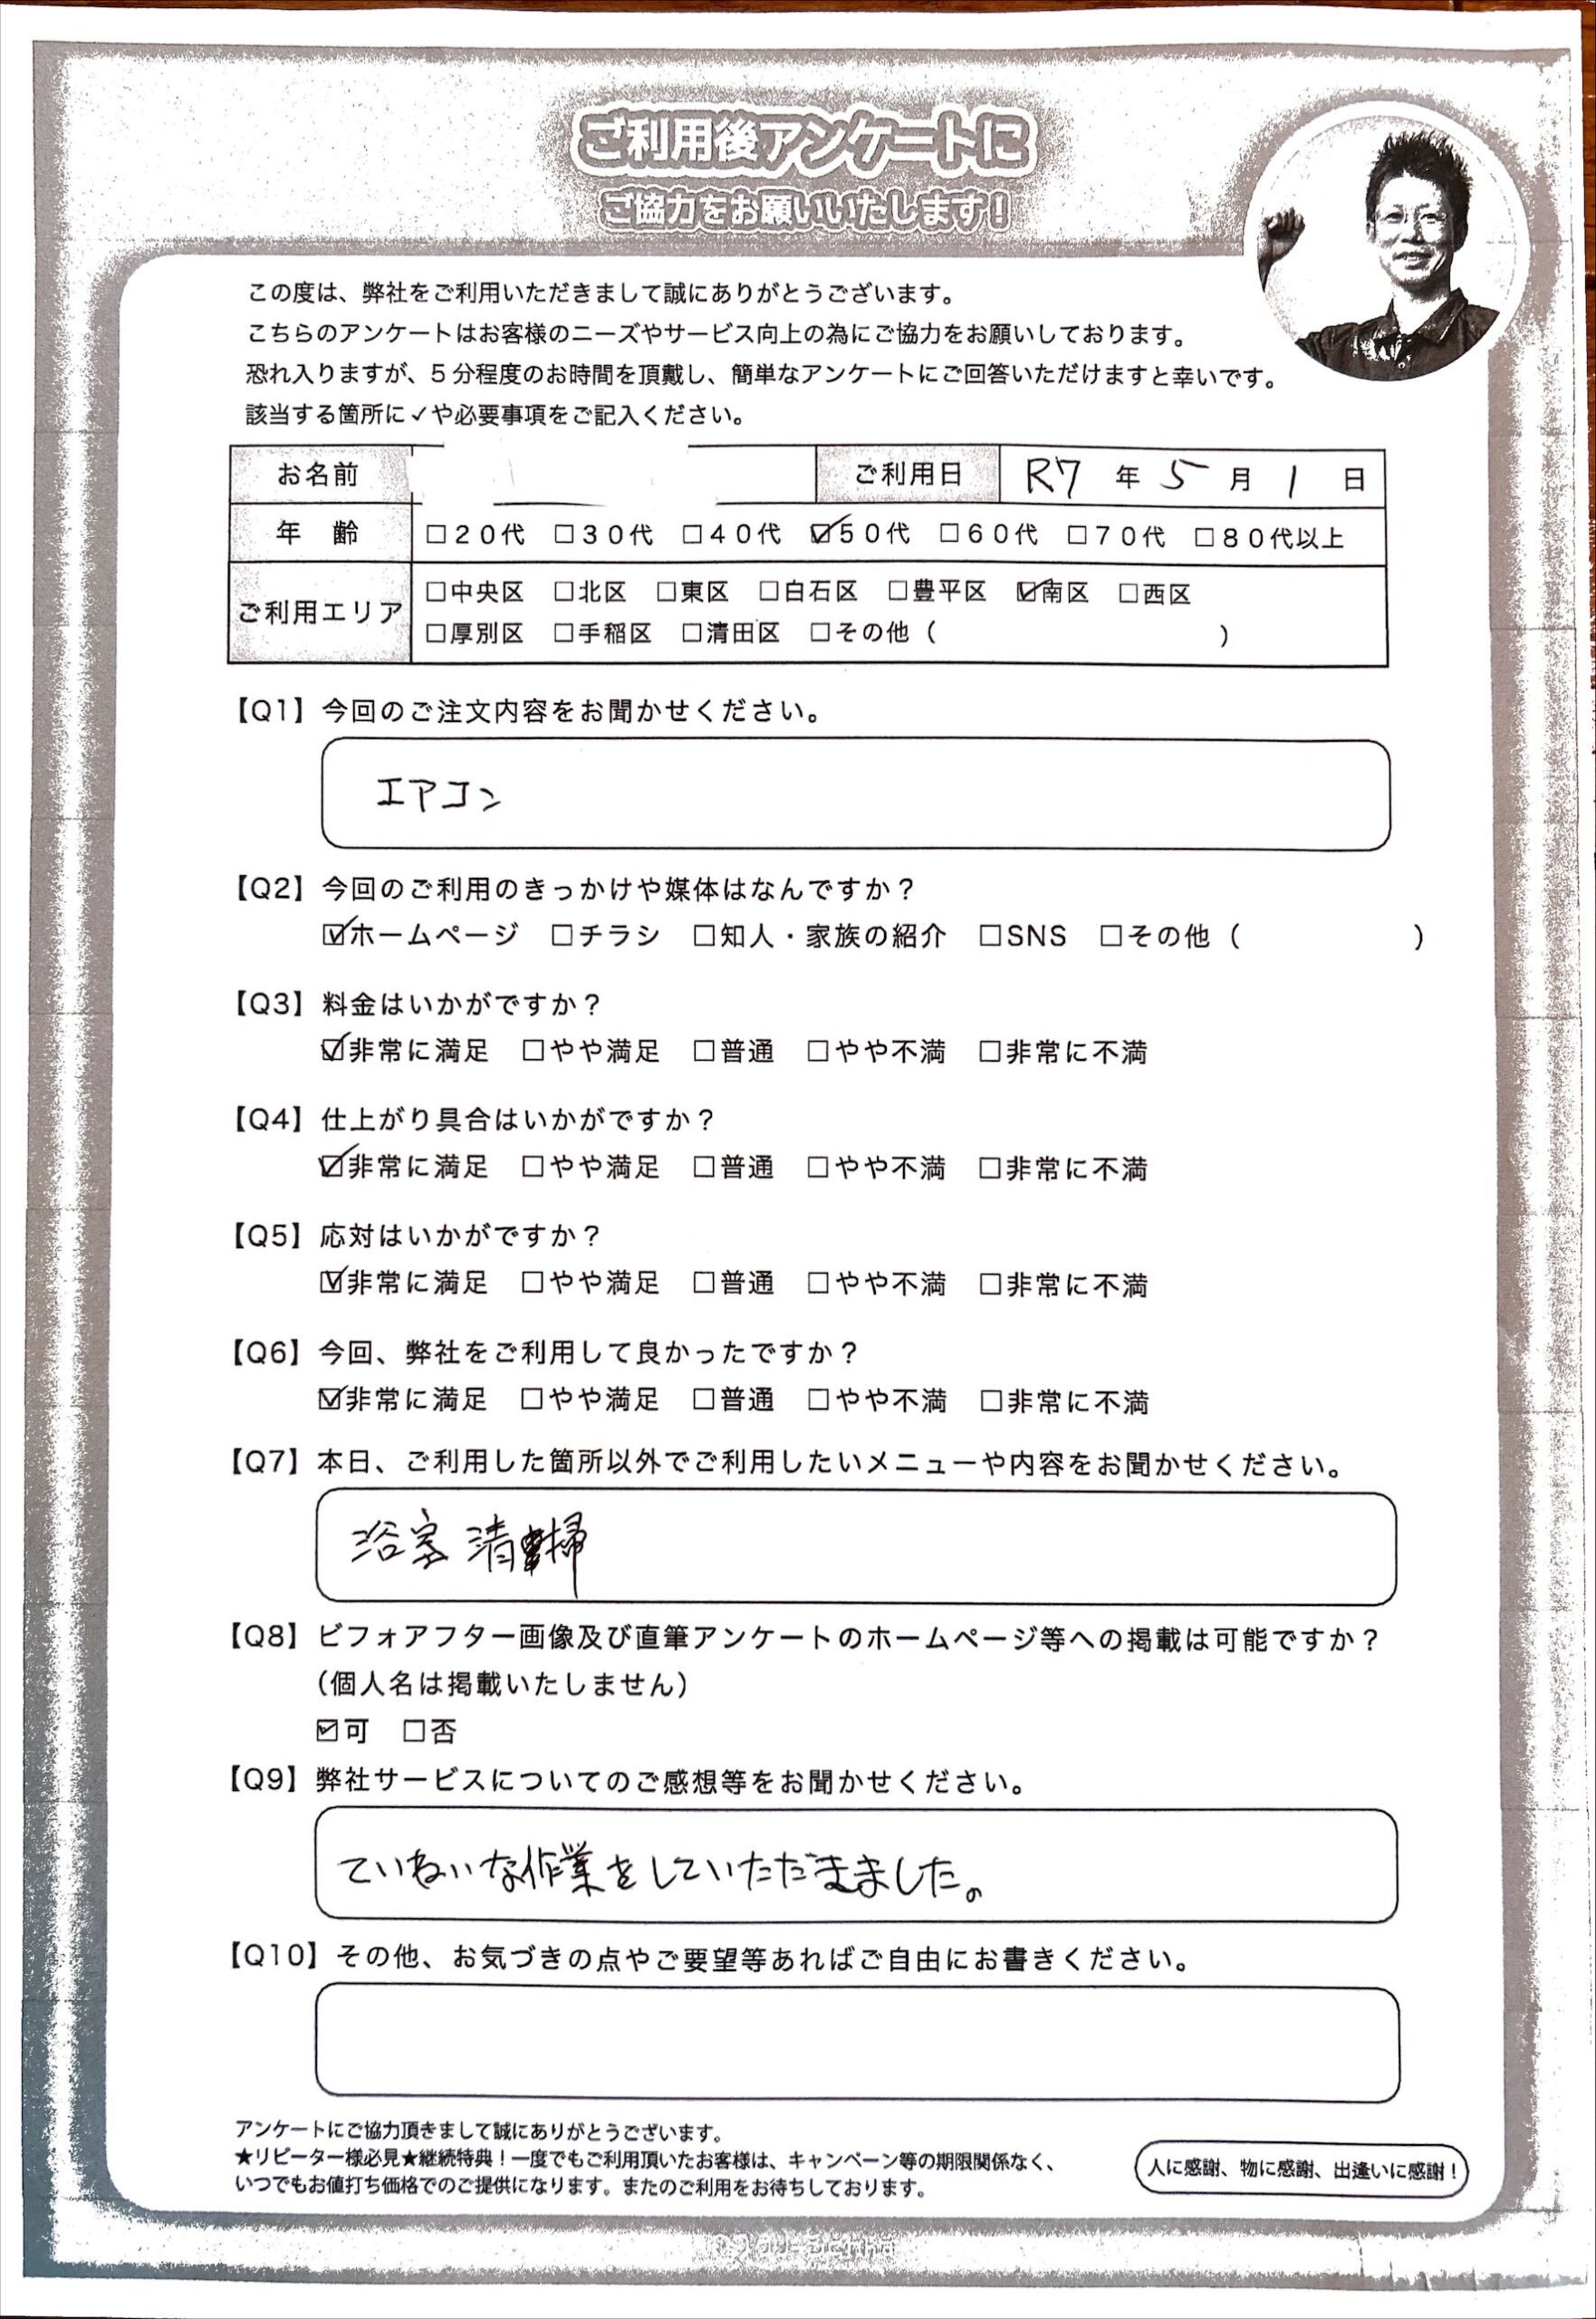 ご利用後アンケートに
ご協力をお願いいたします!
この度は、弊社をご利用いただきまして誠にありがとうございます。
こちらのアンケートはお客様のニーズやサービス向上の為にご協力をお願いしております。
恐れ入りますが、5分程度のお時間を頂戴し、簡単なアンケートにご回答いただけますと幸いです。
該当する箇所に✓や必要事項をご記入ください。
お名前 ご利用日 R7 年 5 月 1 日
年 齢 □20代 □30代 □40代 ☑50代 □60代 □70代 □80代以上
ご利用エリア □中央区 □北区 □東区 □白石区 □豊平区 ☑南区 □西区
□厚別区 □手稲区 □清田区 □その他( )
【Q1】今回のご注文内容をお聞かせください。
エアコン
【Q2】今回のご利用のきっかけや媒体はなんですか?
☑ホームページ □チラシ □知人・家族の紹介 □SNS □その他( )
【Q3】料金はいかがですか?
☑非常に満足 □やや満足 □普通 □やや不満 □非常に不満
【Q4】仕上がり具合はいかがですか?
☑非常に満足 □やや満足 □普通 □やや不満 □非常に不満
【Q5】応対はいかがですか?
☑非常に満足 □やや満足 □普通 □やや不満 □非常に不満
【Q6】今回、弊社をご利用して良かったですか?
☑非常に満足 □やや満足 □普通 □やや不満 □非常に不満
【Q7】本日、ご利用した箇所以外でご利用したいメニューや内容をお聞かせください。
浴室 清掃
【Q8】ビフォアフター画像及び直筆アンケートのホームページ等への掲載は可能ですか?
(個人名は掲載いたしません)
☑可 □否
【Q9】弊社サービスについてのご感想等をお聞かせください。
ていねいな作業をしていただきました。
【Q10】その他、お気づきの点やご要望等あればご自由にお書きください。
アンケートにご協力頂きまして誠にありがとうございます。
★リピーター様必見★継続特典!一度でもご利用頂いたお客様は、キャンペーン等の期限関係なく、
いつでもお値打ち価格でのご提供になります。またのご利用をお待ちしております。
人に感謝、物に感謝、出逢いに感謝!